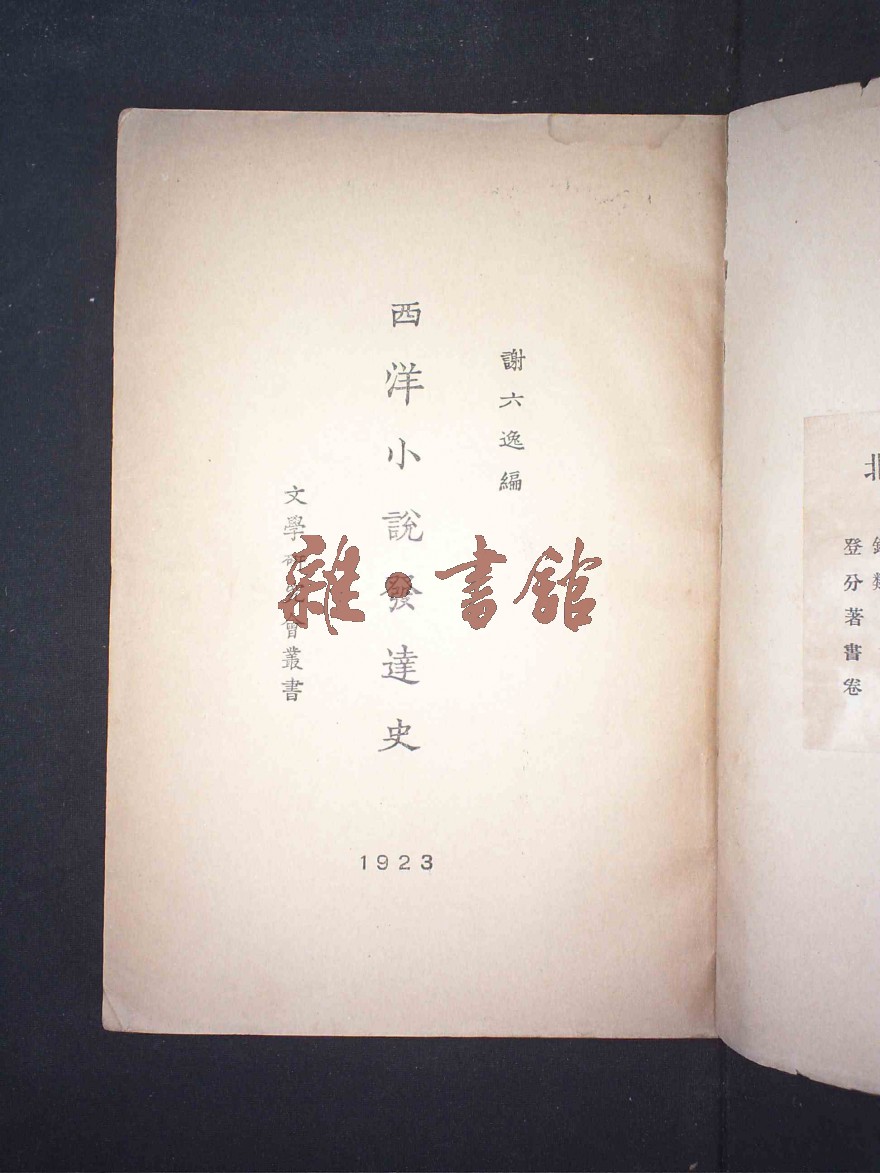 謝六逸編
西洋小說發達史
文學研究會叢書
1923
雜·書館
北
登分著書卷